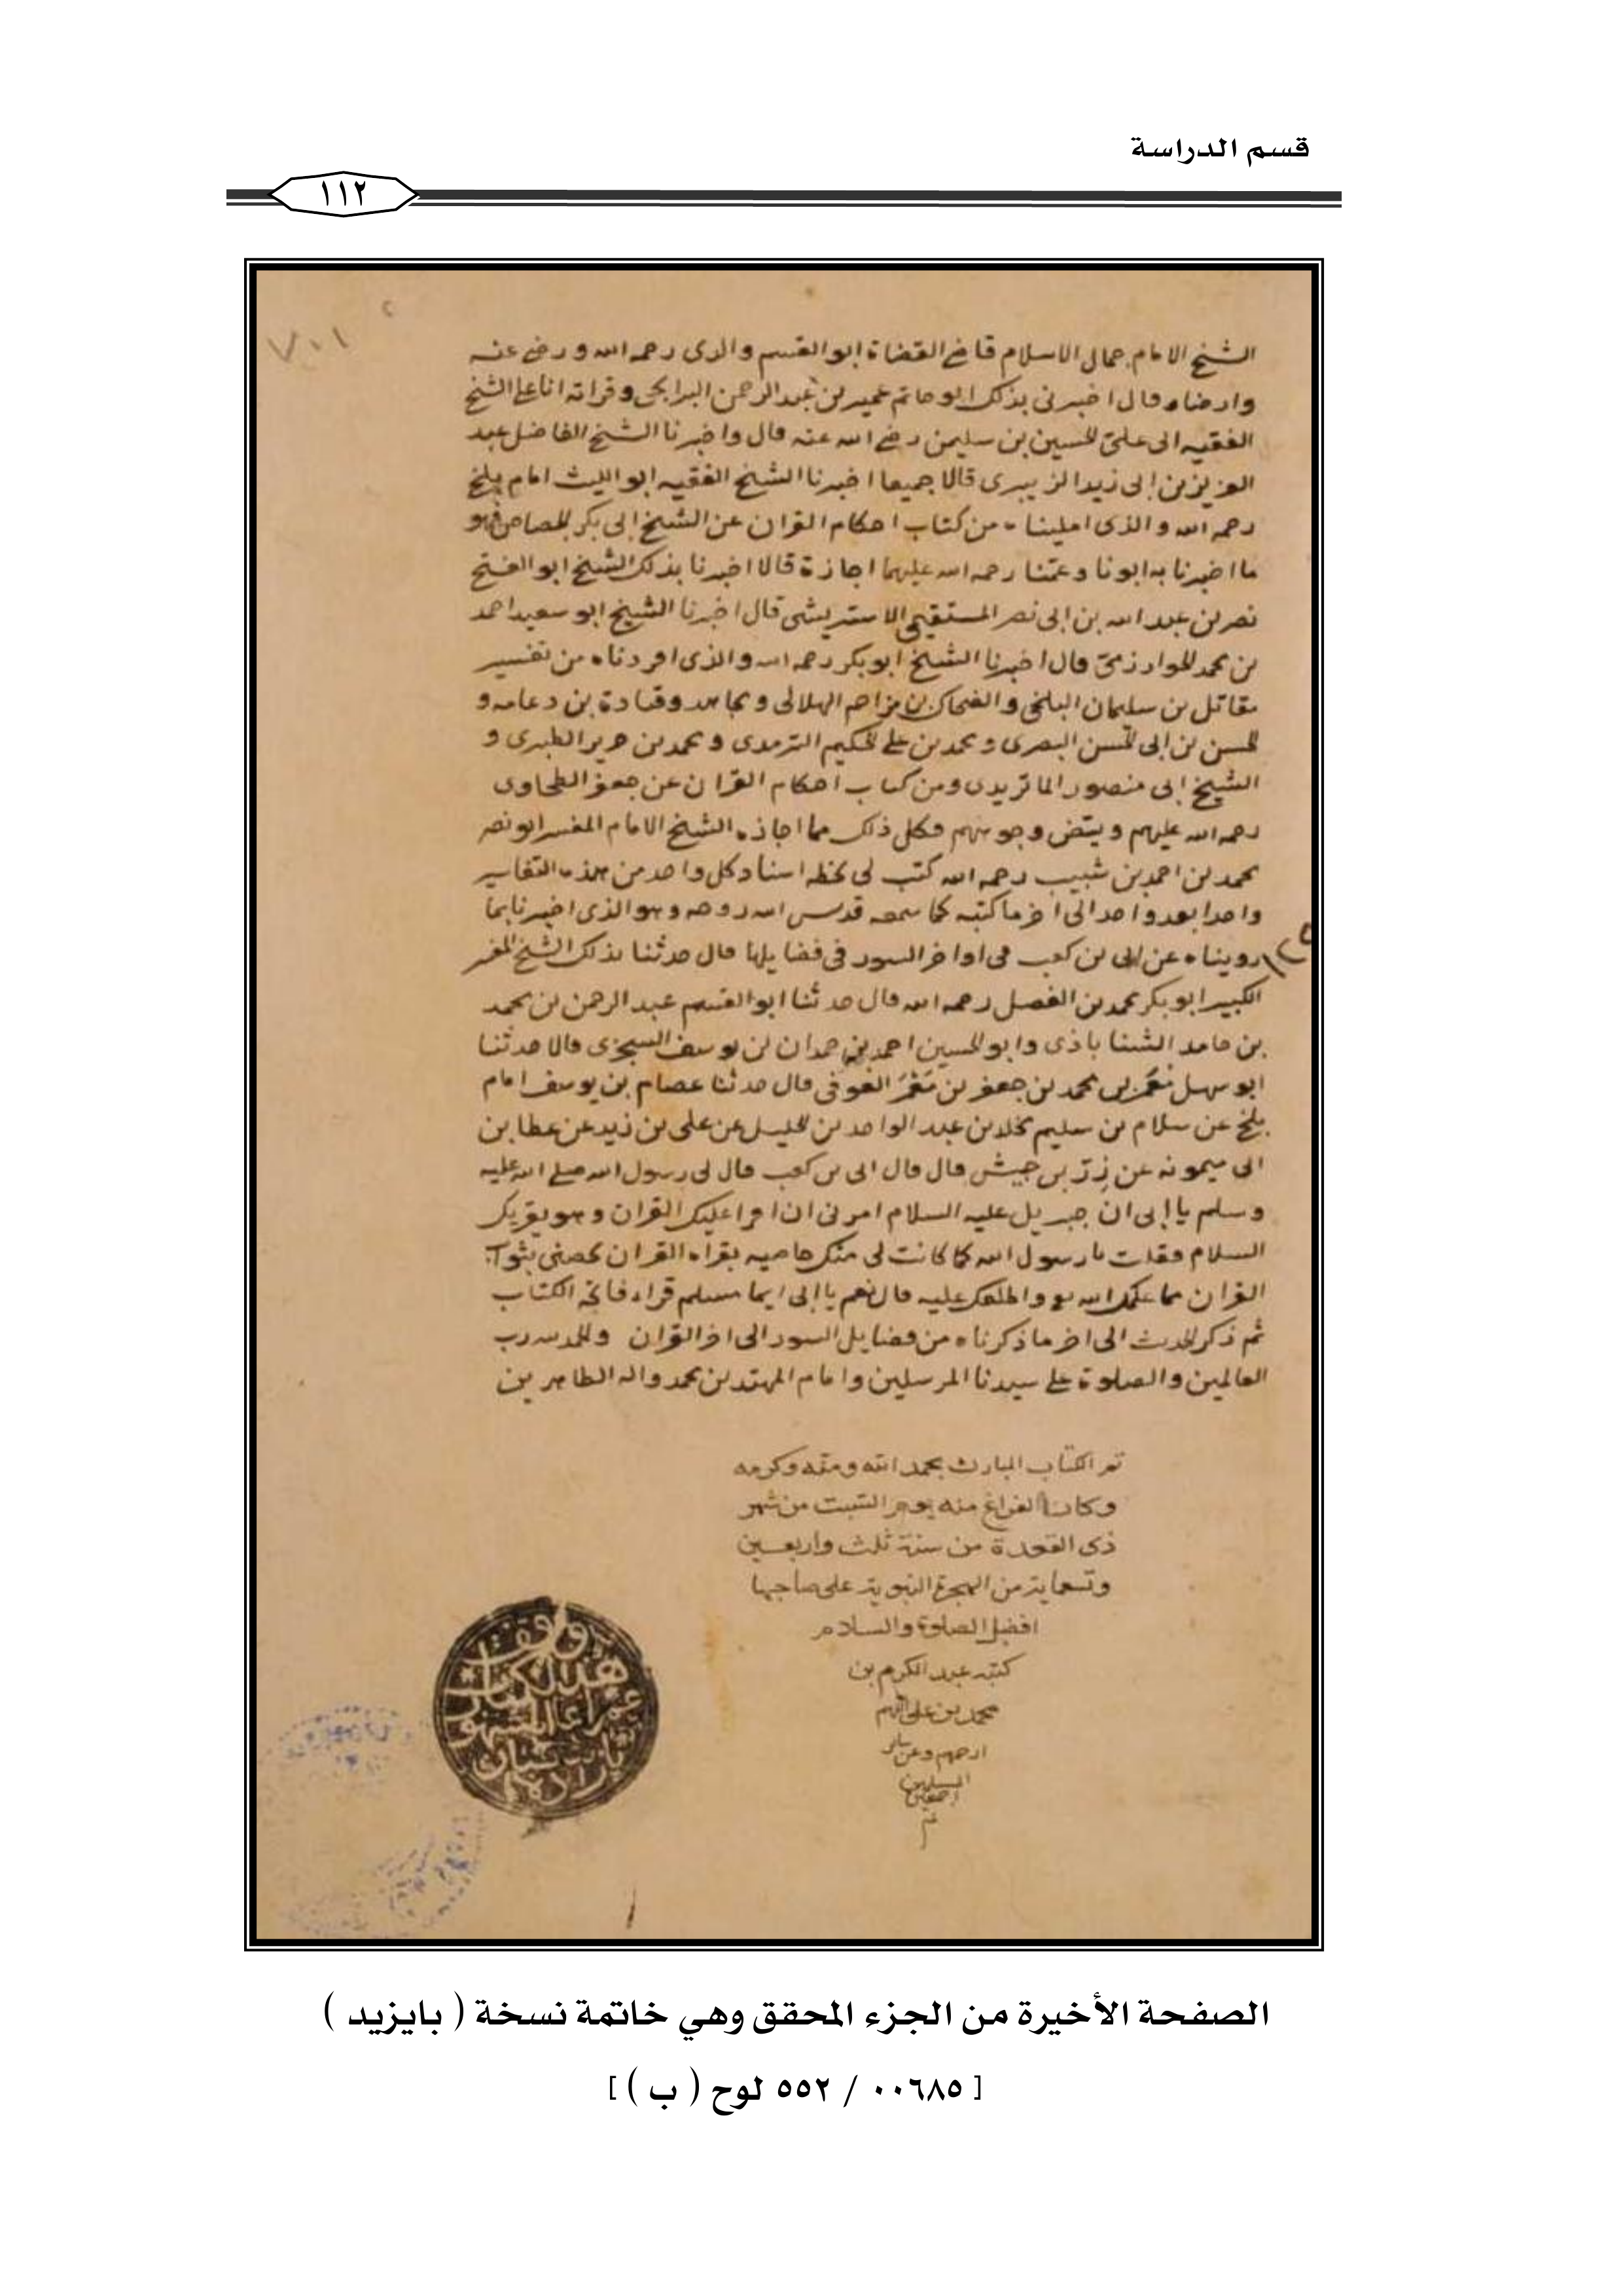 قسم الدراسة
١١٢
الشيخ الامام جمال الاسلام قاضي القضاة ابو القسم والدى رحمه الله ورضى عنه
وارضاه قال اخبرنى بذلك ابو حاتم عمير بن عبد الرحمن وقراته انا على الشيخ
الفقيه ابى على الحسين بن سليمن رضى الله عنه قال واخبرنا الشيخ الفاضل عبد
العزيز بن ابى زيد الزبيرى قالا جميعا اخبرنا الشيخ الفقيه ابو الليث امام بلخ
رحمه الله والذى امليناه من كتاب احكام القران عن الشيخ ابى بكر الجصاص فهو
ما اخبرنا به ابونا وعمنا رحمه الله عليهما اجازة قالا اخبرنا بذلك الشيخ ابو الفتح
نصر بن عبد الله بن ابى نصر قال اخبرنا الشيخ ابو سعيد احمد
بن محمد الخوارزمى قال اخبرنا الشيخ ابو بكر رحمه الله والذى اوردناه من تفسير
مقاتل بن سليمان البلخى والضحاك بن مزاحم الهلالى ومجاهد وقتادة بن دعامه و
الحسن بن ابى الحسن البصرى ومحمد بن على الحكيم الترمدى ومحمد بن جرير الطبرى و
الشيخ ابى منصور الماتريدى ومن كتاب احكام القران عن جعفر الطحاوى
رحمه الله عليهم وجوههم فكل ذلك مما اجازه الشيخ الامام المفسر ابو نصر
محمد بن احمد بن شبيب رحمه الله كتب لى بخطه اسناد كل واحد من هذه التفاسير
واحدا بعد واحد الى اخر ما كتبه كما سمعه قدس الله روحه وهو الذى اخبرنا بما
رويناه عن ابى بن كعب فى اواخر السور فى فضايلها قال حدثنا بذلك الشيخ المفسر
الكبير ابو بكر محمد بن الفضل رحمه الله قال حدثنا ابو القسم عبد الرحمن بن محمد
بن حامد وابو الحسين احمد بن حمدان بن يوسف السجزى قالا حدثنا
ابو سهل مَعْمَر بن محمد بن جعفر بن مَعْمَر العوفى قال حدثنا عصام بن يوسف امام
بلخ عن سلام بن سليم عن عبد الواحد بن الخليل عن على بن زيد عن عطا بن
ابى ميمونه عن زِرّ بن حبيش قال قال ابى بن كعب قال لى رسول الله صلى الله عليه
وسلم يا ابى ان جبريل عليه السلام امرنى ان اقرا عليك القران وهو يقريك
السلام فقلت يا رسول الله كما كانت لى منك خاصيه بقراه القران
القران مما علمك الله واطلعك عليه قال نعم يا ابى ايما مسلم قراء فاتحه الكتاب
ثم ذكر الحديث الى اخر ما ذكرناه من فضايل السور الى اخر القران والحمد لله رب
العالمين والصلوة على سيدنا المرسلين وامام المهتدين محمد واله الطاهرين
تم الكتاب المبارك بحمد الله ومنه وكرمه
وكان الفراغ منه يوم السبت من شهر
ذى القعدة من سنة ثلث واربعين
وتسعماية من الهجرة النبوية على صاحبها
افضل الصلوة والسلام
كتبه عبد الكرم بن
محمد بن على اللهم
ارحمهم وعن ساير
المسلمين
اجمعين
الصفحة الأخيرة من الجزء المحقق وهي خاتمة نسخة ( بايزيد )
[ ٠٠٦٨٥ / ٥٥٢ لوح ( ب ) ]